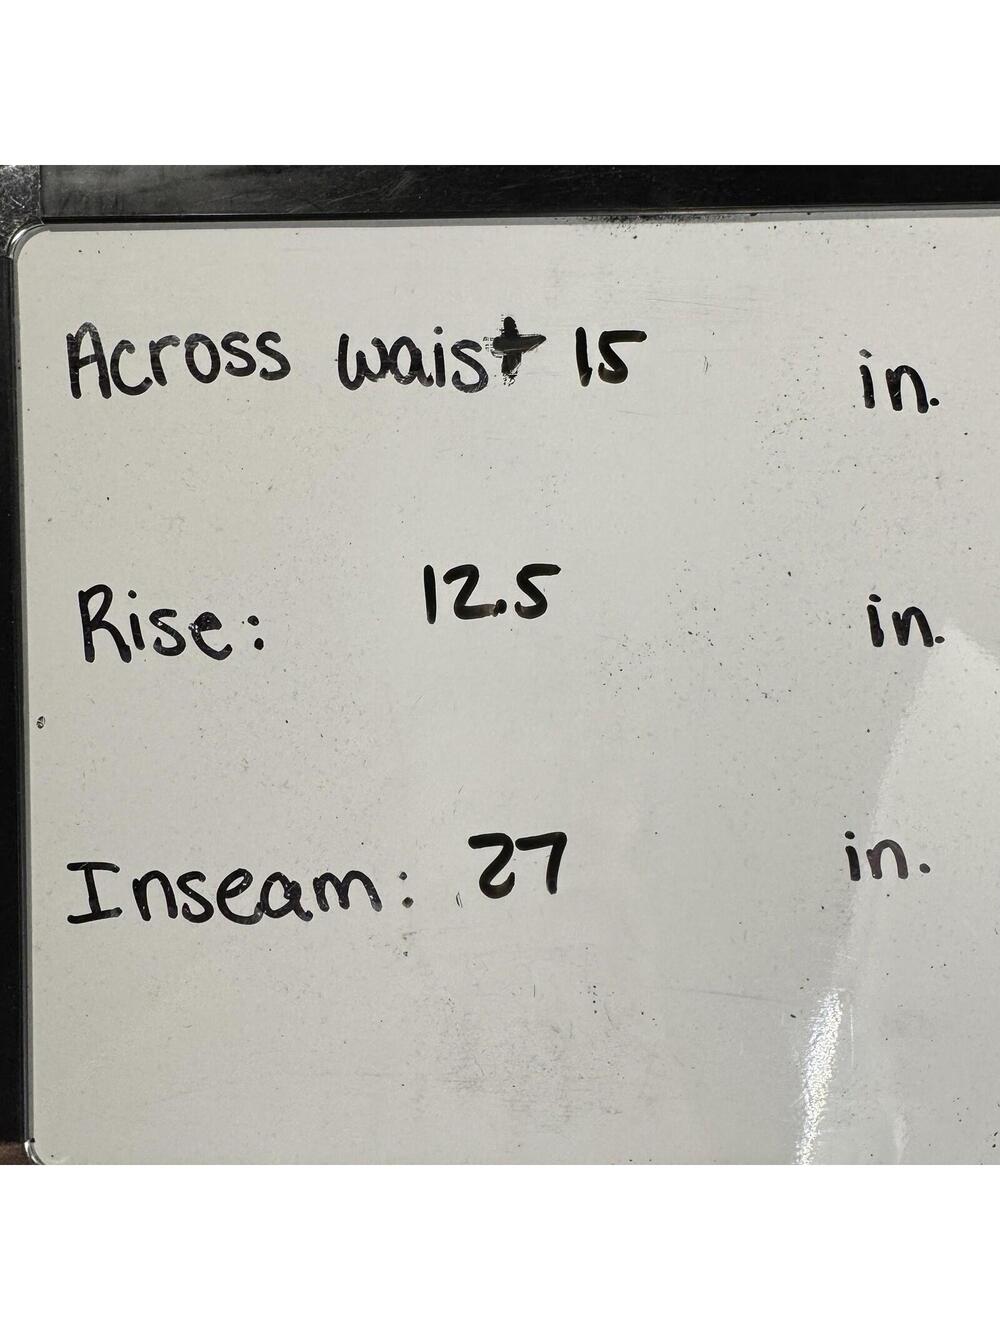 Across waist 15 in.
Rise: 12.5 in.
Inseam: 27 in.